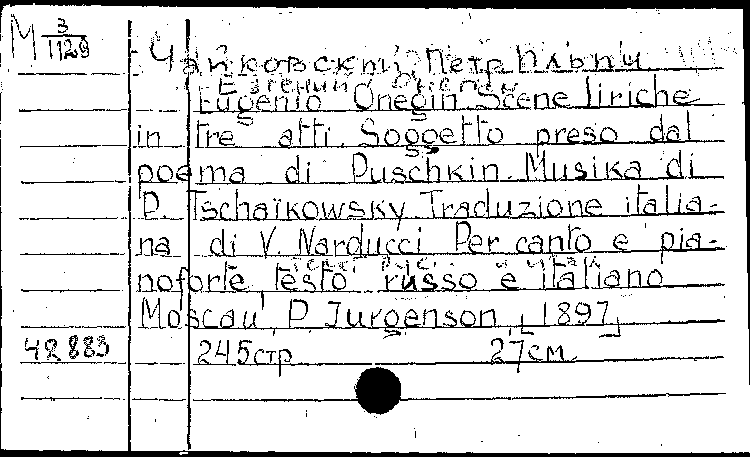 М 3/1129
Чайковский, Петр Ильич
Евгений Онегин
Eugenio Onegin Scene liriche
in tre atti. Soggetto preso dal
poema di Puschkin. Musika di
P. Tschaïkowsky. Traduzione italia-
na di V. Narducci Per canto e pia-
noforte testo russo e italiano
Moscau, P. Jurgenson, [1897]
42883 245стр 27см